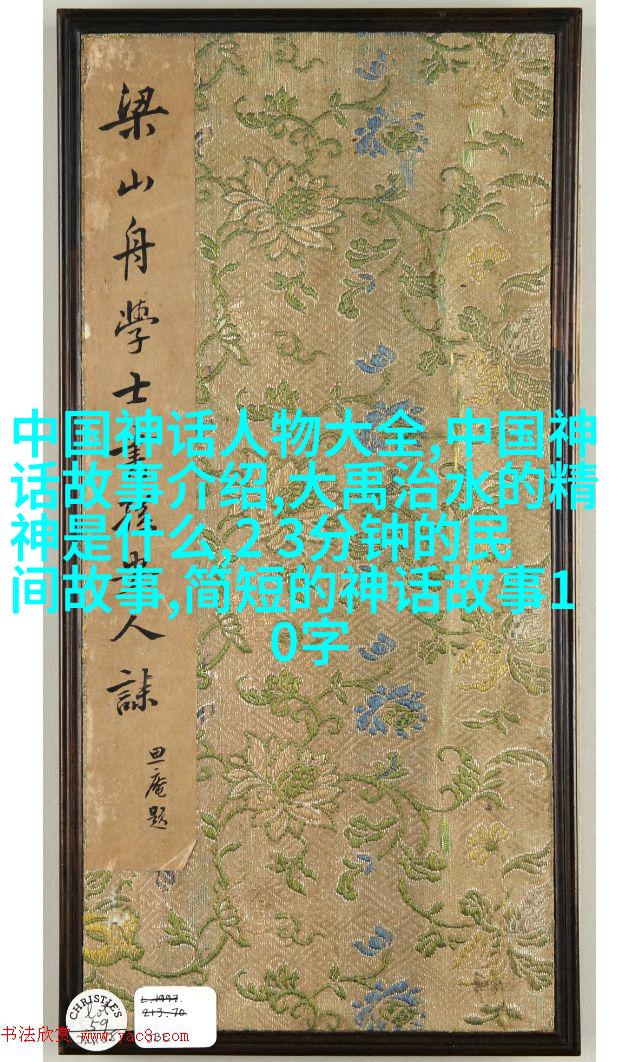 梁山舟學士書
人誄
庵題
中国神话人物大全,中国神
话故事介绍,大禹治水的精
神是什么,2 3分钟的民
间故事,简短的神话故事1
0字
CHRISTIE'S
lot
59
L.1997.
213.70
书法欣赏 www.yac8.com